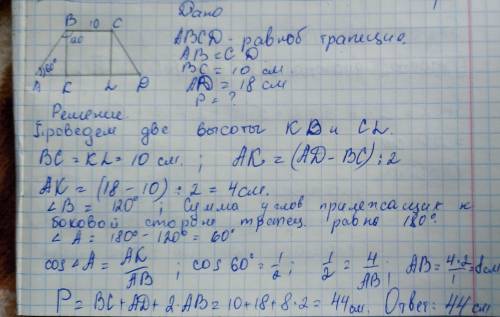 Дано
B 10 C
ABCD - равноб трапеция.
AB = CD
BC = 10 см
AD = 18 см
P = ?
60°
A K L D
Решение
Проведем две высоты KB и CL.
BC = KL = 10 см. ; AK = (AD - BC) : 2
AK = (18 - 10) : 2 = 4 см.
∠B = 120° ; Сумма углов прилежащих к
боковой стороне трапец. равна 180°.
∠A = 180° - 120° = 60°
cos∠A = AK/AB ; cos 60° = 1/2 ; 1/2 = 4/AB ; AB = 4·2/1 = 8 см
P = BC + AD + 2·AB = 10 + 18 + 8·2 = 44 см. Ответ: 44 см